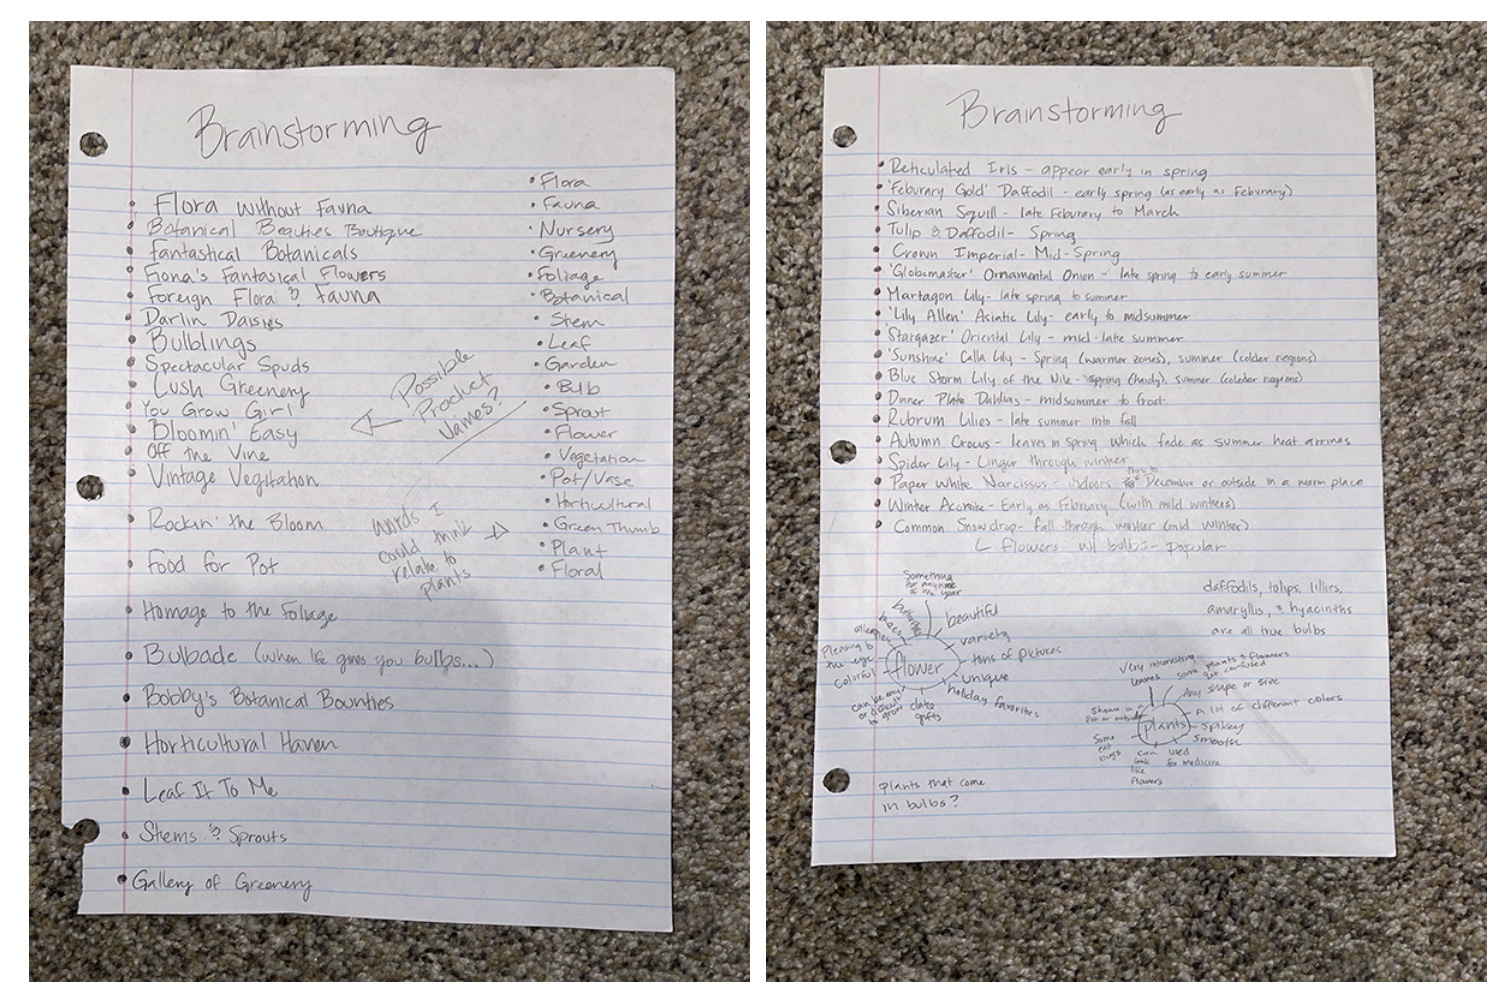 Brainstorming
Flora without Fauna
Botanical Beauties Boutique
Fantastical Botanicals
Fiona's Fantasical Flowers
Foreign Floral & Fauna
Darlin Daisies
Bulblings
Spectacular Spuds
Lush Greenery
You Grow Girl
Bloomin' Easy
Off the Vine
Vintage Vegitation
Rockin' the Bloom
Food for Pot
Homage to the Foliage
Bulbade (when life gives you bulbs...)
Bobby's Botanical Bounties
Horticultural Haven
Leaf It To Me
Stems & Sprouts
Gallery of Greenery
Possible
Product
Names?
words I
could think
relate to
plants
Flora
Fauna
Nursery
Greenery
Foliage
Botanical
Stem
Leaf
Garden
Bulb
Sprout
Flower
Vegetation
Pot/Vase
Horticultural
Green Thumb
Plant
Floral
Brainstorming
Reticulated Iris - appear early in spring
'Feburary Gold' Daffodil - early spring (as early as Feburary)
Siberian Squill - late Feburary to March
Tulip & Daffodil - Spring
Crown Imperial - Mid-Spring
'Globemaster' Ornamental Onion - late spring to early summer
Martagon Lily - late spring to summer
'Lily Allen' Asiatic Lily - early to midsummer
'Stargazer' Oriental Lily - mid-late summer
'Sunshine' Calla Lily - Spring (warmer zones), summer (colder regions)
Blue Storm Lily of the Nile - Spring (hardy), summer (colder regions)
Dinner Plate Dahlias - midsummer to frost
Rubrum Lilies - late summer into fall
Autumn Crocus - leaves in spring which fade as summer heat arrives
Spider Lily - Lingur through winter
Paper White Narcissus - indoors thru to December or outside in a warm place
Winter Aconite - Early as February (with mild winters)
Common Snowdrop - fall through winter (mid winter)
flowers w/ bulbs - popular
Something
for anytime
of the year
butterflies
bees
allergies
Pleasing to
the eye
Colorful
can be easy
or difficult
to grow
date
gifts
flower
beautiful
variety
tons of pictures
unique
holiday favorites
daffodils, tulips, lillies,
amaryllis, & hyacinths
are all true bulbs
very interesting
leaves
some plants & flowers
get confused
Any shape or size
A lot of different colors
spikey
smooth
used
for medicine
can
look
like
flowers
Some
eat
bugs
Shown in a
Pot or outside
plants
plants that come
in bulbs?